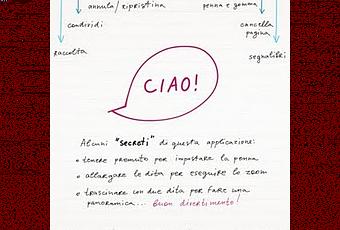 annulla/ripristina
penna e gomma
condividi
cancella
pagina
raccolta
segnalibri
CIAO!
Alcuni "secreti" di questa applicazione:
• tenere premuto per impostare la penna
• allargare le dita per eseguire lo zoom
• trascinare con due dita per fare una
panoramica... buon divertimento!